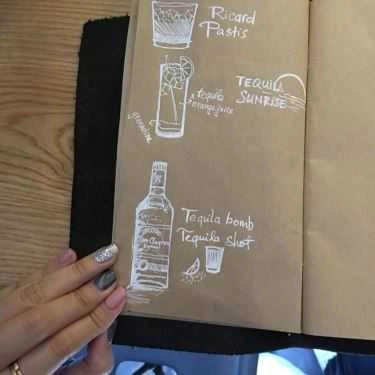 Ricard
Pastis
TEQUILA
SUNRISE
x tequila
x orange juice
grenadine
Tequila bomb
Tequila shot